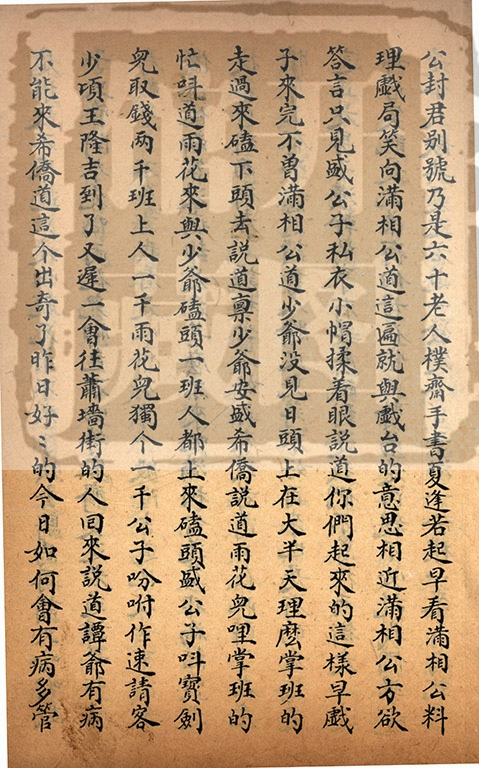 公封君别號乃是六十老人樸齋手書夏逢若起早看滿相公料
理戲局笑向滿相公道這遍就與戲台的意思相近滿相公方欲
答言只見盛公子私衣小帽揉着眼説道你們起來的這樣早戲
子來完不曽滿相公道少爺没見日頭上在大半天理麽掌班的
走過來磕下頭去説道禀少爺安盛希僑説道雨花兒哩掌班的
忙呌道雨花來與少爺磕頭一班人都上來磕頭盛公子呌寳劍
兒取錢两千班上人一千雨花兒獨个一千公子吩咐作速請客
少項王隆吉到了又遲一會徃蕭墻街的人囘來説道譚爺有病
不能來希僑道這个出奇了昨日好〻的今日如何會有病多管